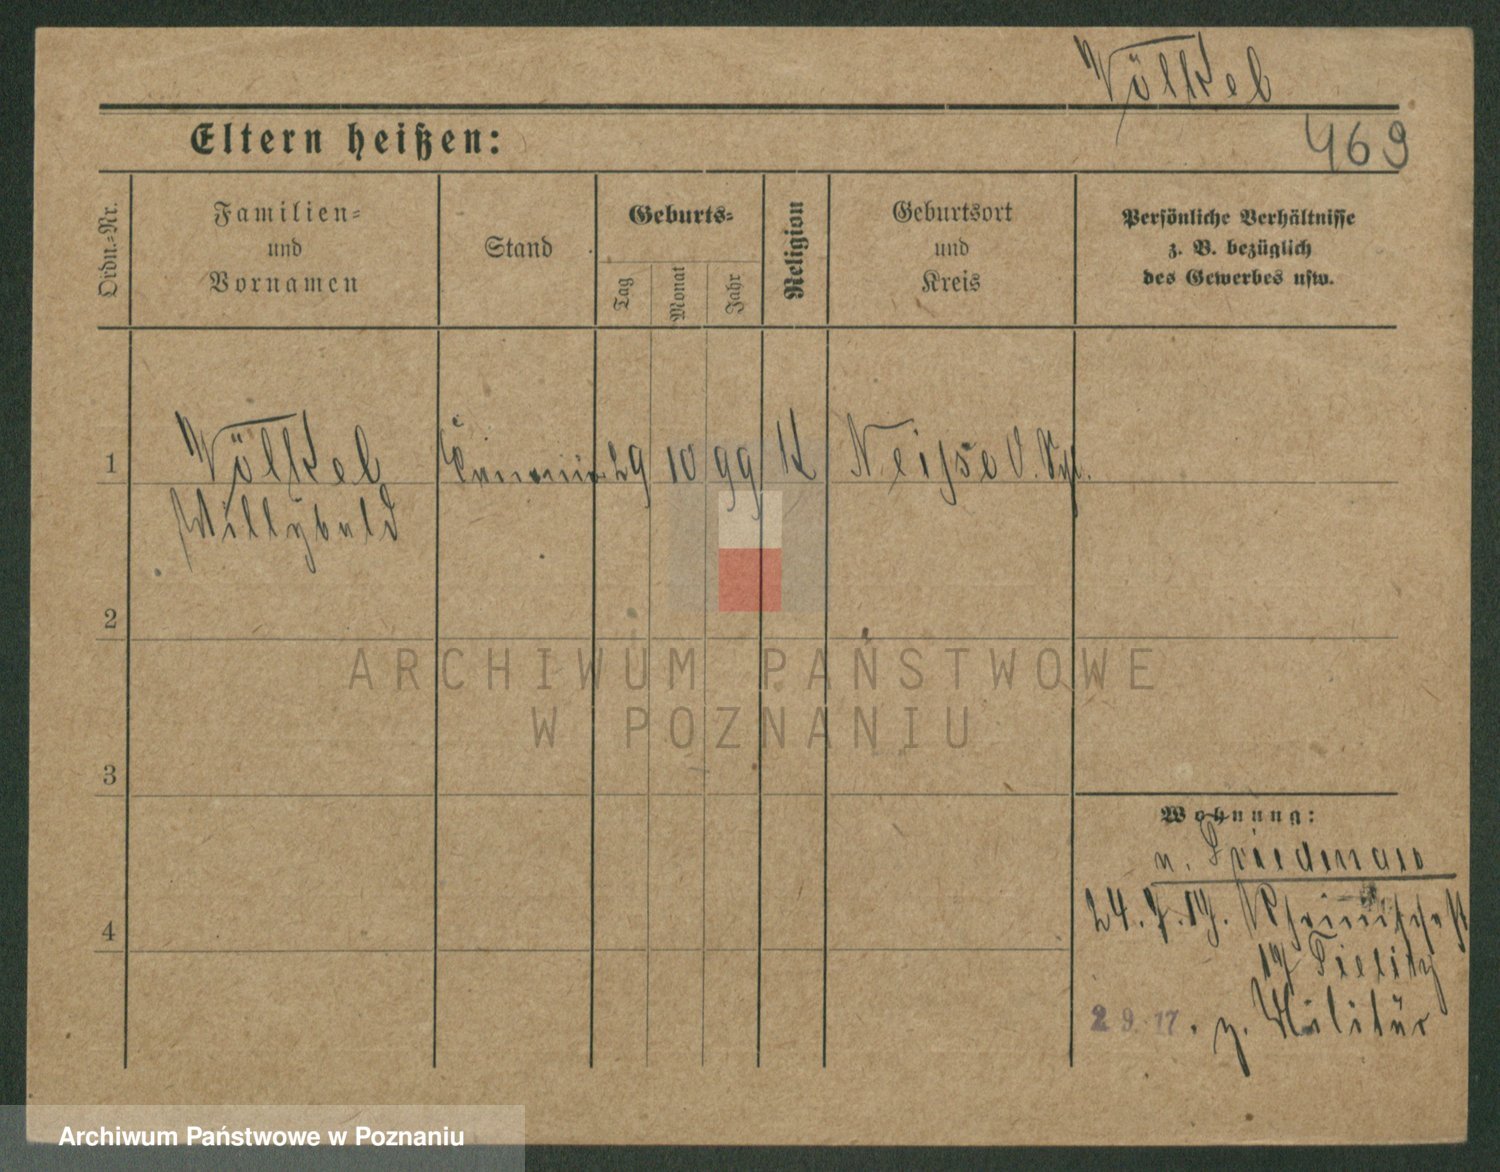 Völkel
469
Eltern heißen:
Ordn.-Nr.
Familien-
und
Vornamen
Stand
Geburts-
Tag
Monat
Jahr
Religion
Geburtsort
und
Kreis
Persönliche Verhältnisse
z. B. bezüglich
des Gewerbes usw.
1
Völkel 29 10 99 K Neisse O.
Willybald
2
ARCHIWUM PAŃSTWOWE
W POZNANIU
3
Wohnung:
n. Friedenau
4
24. 7. 17. Rheinische
17 Tielitz
2 9. 17. z. Militär
Archiwum Państwowe w Poznaniu